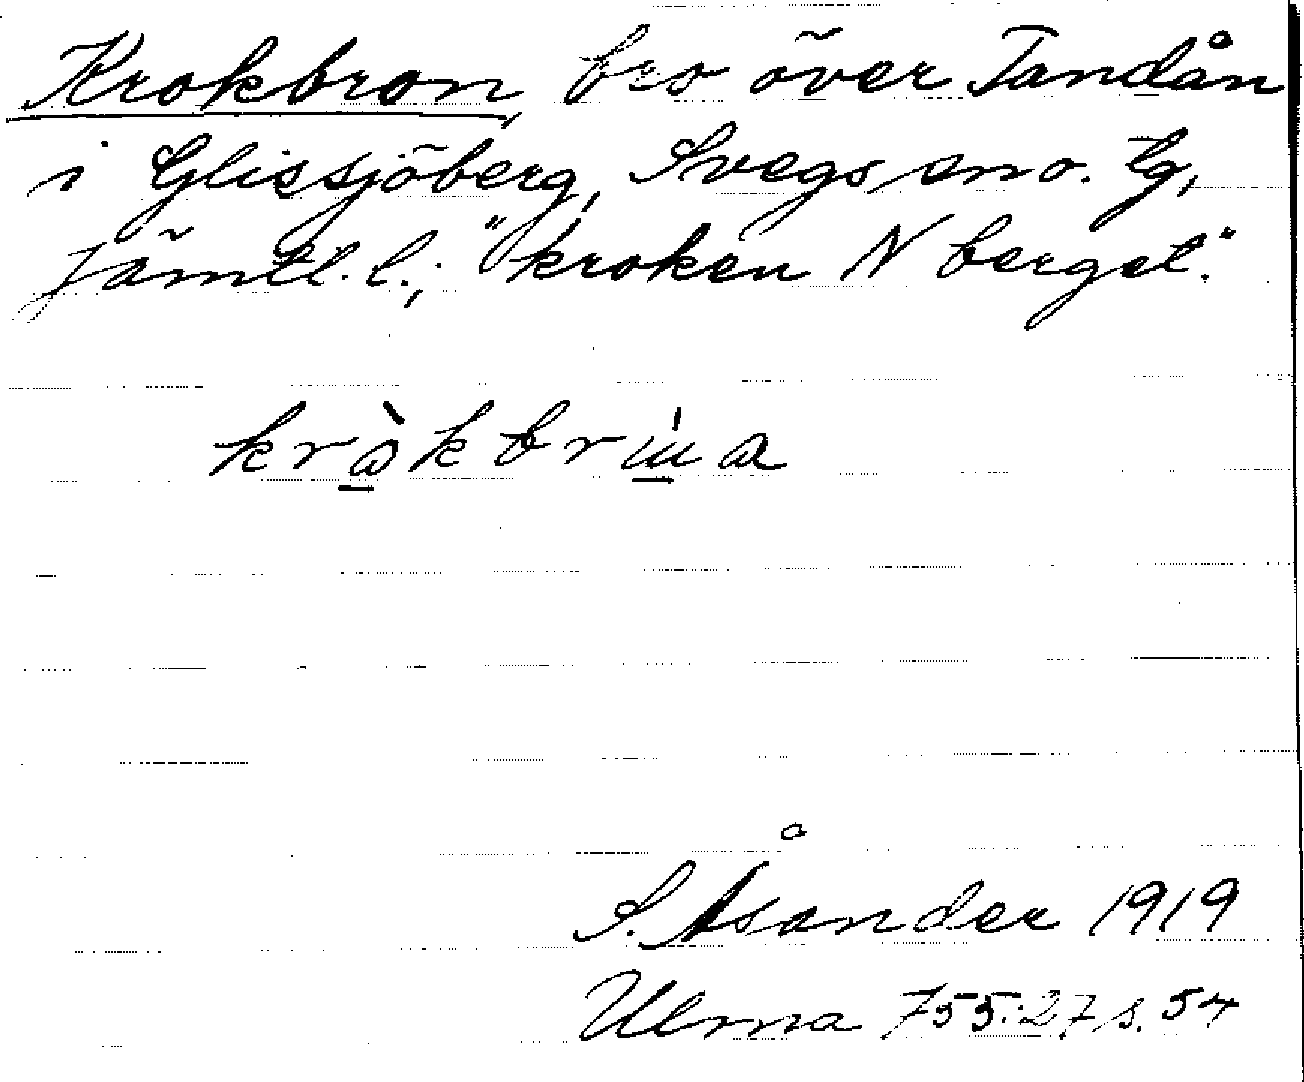 Krokbron, bro över Tandån
i Glissjöberg, Svegs sno. tg,
Jämtl. l.; "kroken N berget."
kràkbrṳ́a
S. Åsander 1919
Ulma 755:27 s. 54